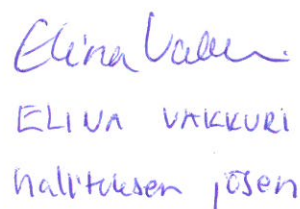 Elina Vakkuri
ELINA VAKKURI
hallituksen jäsen